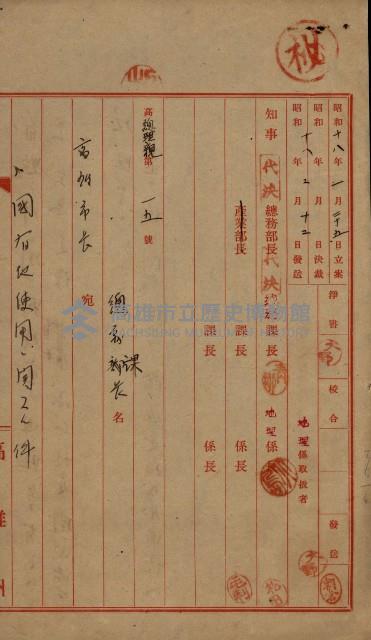 昭和十八年一月二十五日立案
昭和 年 月 日決裁
昭和十八年二月十二日發送
淨書
校合
發送
地理係取扱者
知事
代決
總務部長
代決
課長
地理係
產業部長
課長
係長
課長
係長
高總理親第一五號
總務部長名
高雄市長 宛
國有地使用ニ関スル件
高雄州
高雄市立歷史博物館
KAOHSIUNG MUSEUM OF HISTORY